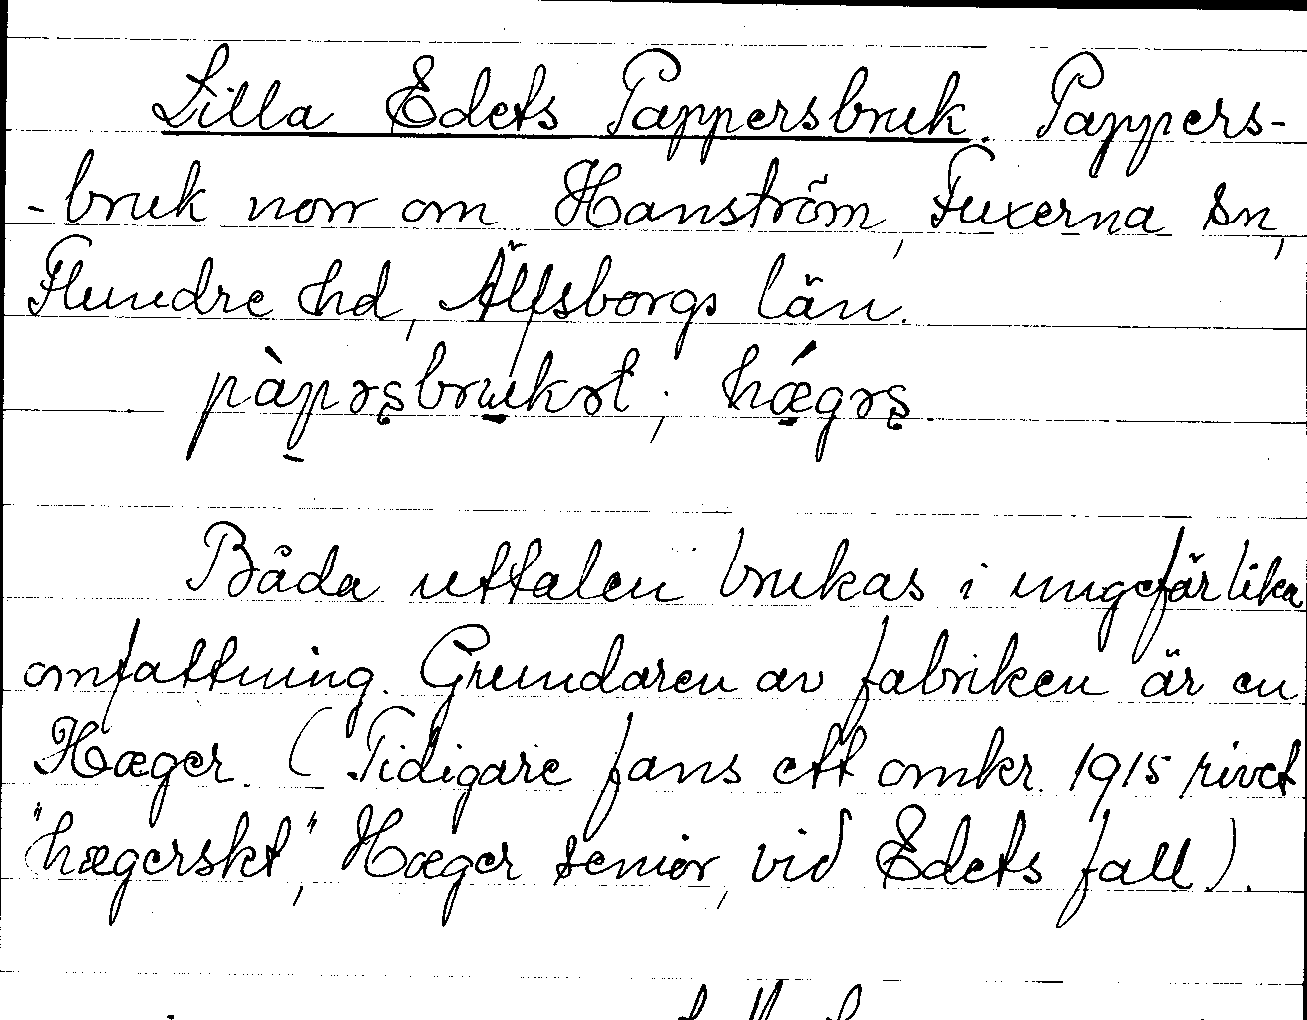 Lilla Edets Pappersbruk. Pappers-
-bruk norr om Hanström, Fuxerna sn,
Flundre hd, Älfsborgs län.
pàpərsbrukət; hǽgərs.
Båda uttalen brukas i ungefär lika
omfattning. Grundaren av fabriken är en
Hæger. (Tidigare fans ett omkr. 1915 rivet
"hægerskt," Hæger senior, vid Edets fall).